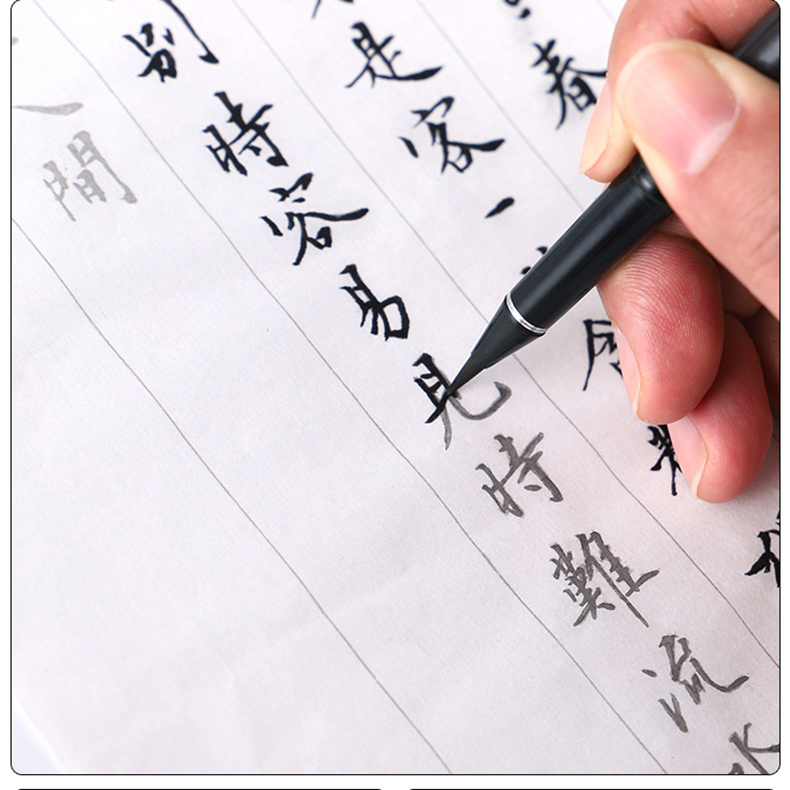 春
是客一
別時容易見時難流水
人間